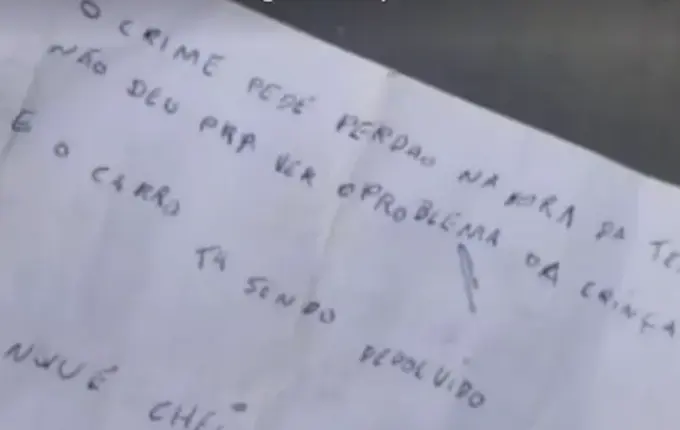 O CRIME PEDE PERDAO NA HORA DA TE
NÃO DEU PRA VER O PROBLEMA DA CRINÇA
E O CARRO TA SENDO DEVOLVIDO